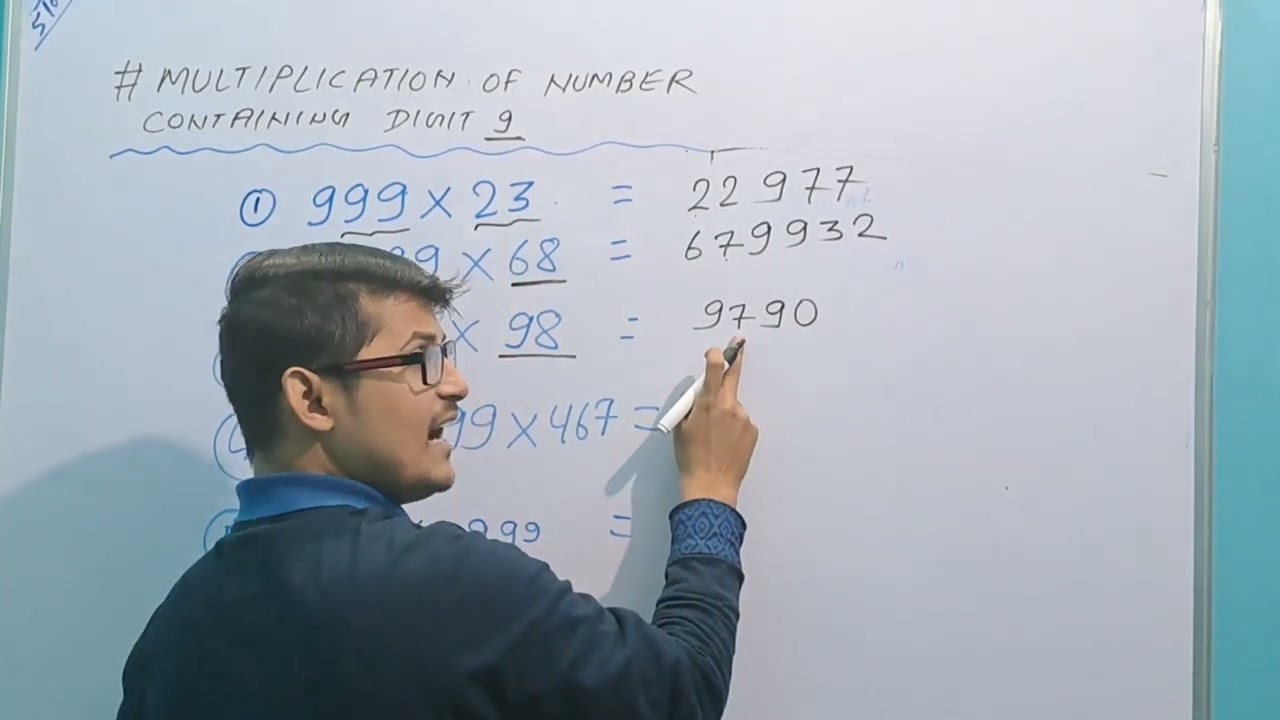 # MULTIPLICATION OF NUMBER
CONTAINING DIGIT 9
① 999 × 23 = 22977
99 × 68 = 679932
× 98 = 9790
99 × 467 =
999 =